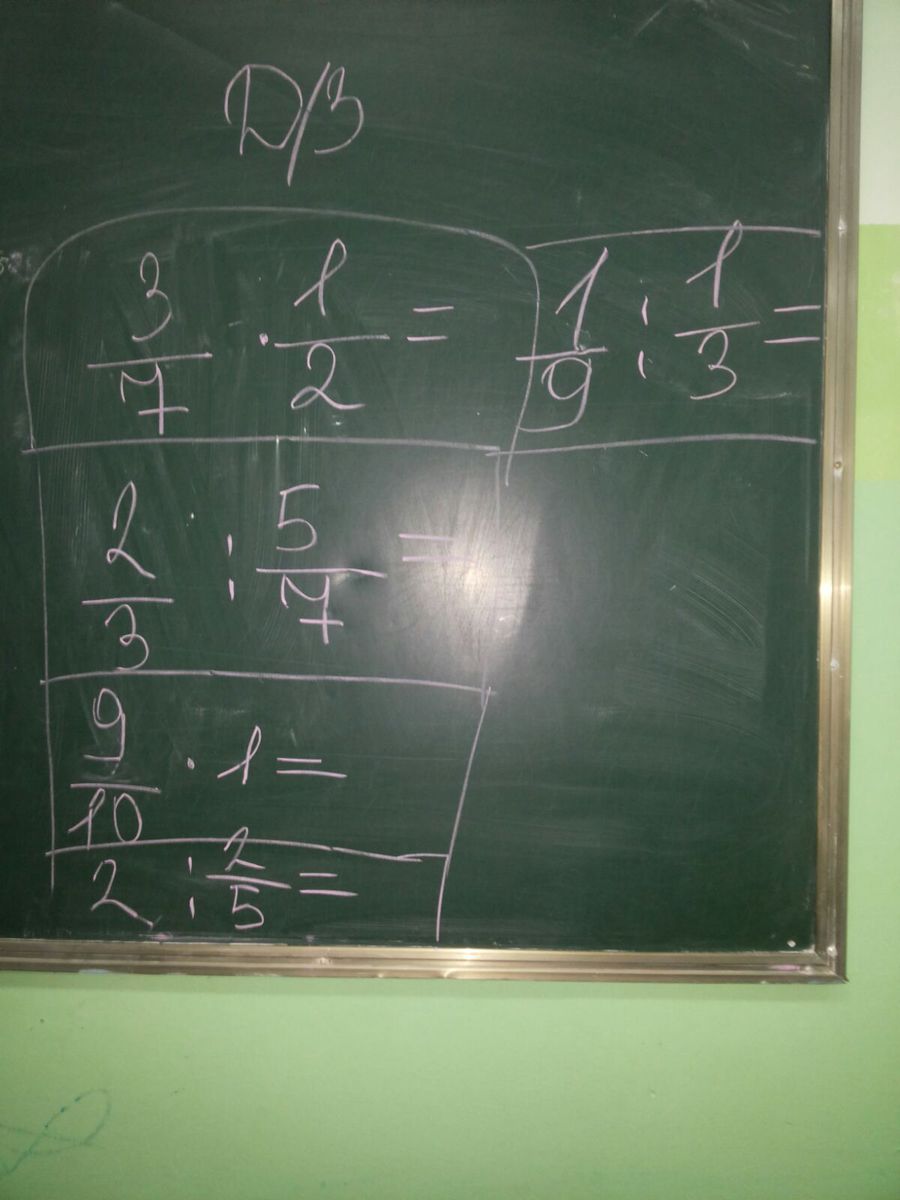 Д/З
3/7 · 1/2 =
1/9 : 1/3 =
2/3 : 5/7 =
9/10 · 1 =
2 : 2/5 =